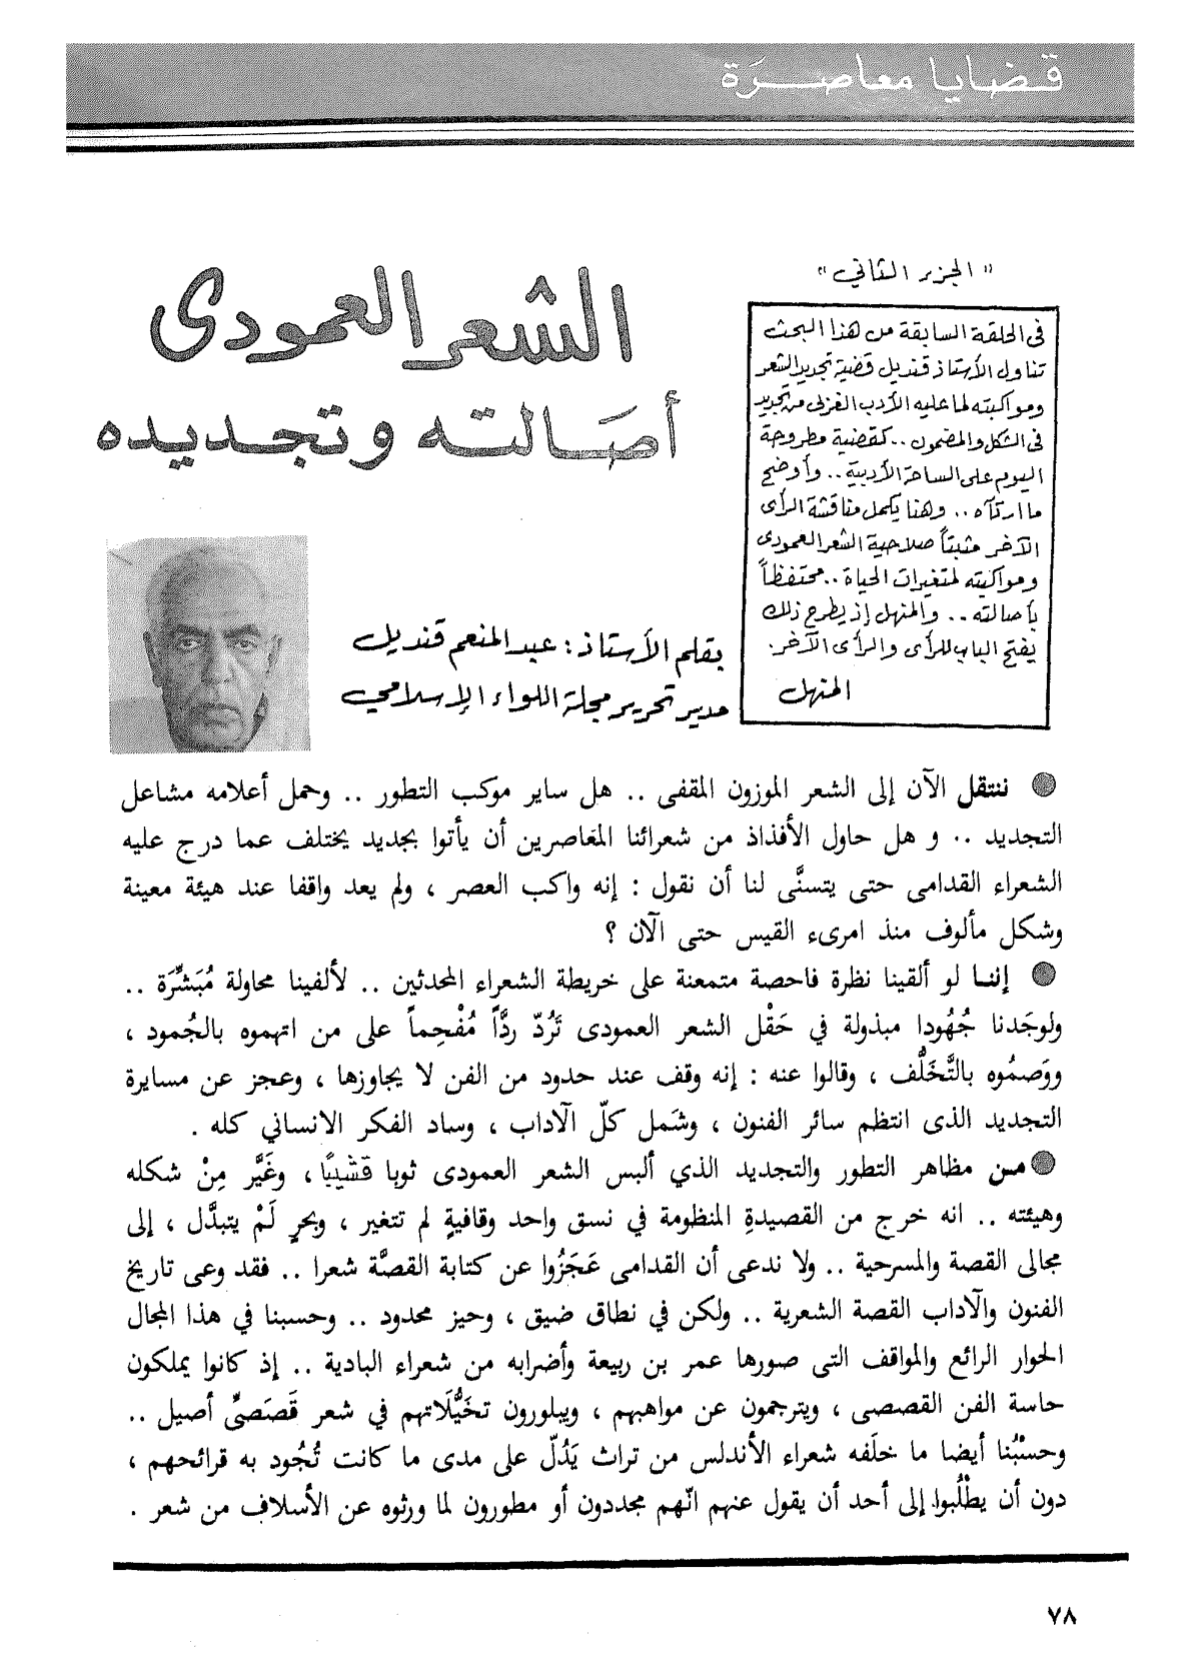 قضايا معاصرة
« الجزء الثاني »
الشعر العمودى
أصالته وتجديده
فى الحلقة السابقة من هذا البحث
تناول الأستاذ قنديل قضية تجديد الشعر
ومواكبته لما عليه الأدب الغربى من تجديد
فى الشكل والمضمون .. كقضية مطروحة
اليوم على الساحة الأدبية .. وأوضح
ما ارتآه .. وهنا يكمل مناقشة الرأى
الآخر مثبتاً صلاحية الشعر العمودى
ومواكبته لمتغيرات الحياة .. محتفظاً
بأصالته .. والمنهل إذ يطرح ذلك
يفتح الباب للرأى والرأى الآخر.
المنهل
بقلم الأستاذ : عبد المنعم قنديل
مدير تحرير مجلة اللواء الإسلامي
● ننتقل الآن إلى الشعر الموزون المقفى .. هل ساير موكب التطور .. وحمل أعلامه مشاعل
التجديد .. و هل حاول الأفذاذ من شعرائنا المعَاصرين أن يأتوا بجديد يختلف عما درج عليه
الشعراء القدامى حتى يتسنَّى لنا أن نقول : إنه واكب العصر ، ولم يعد واقفا عند هيئة معينة
وشكل مألوف منذ امرىء القيس حتى الآن ؟
● إننا لو ألقينا نظرة فاحصة متمعنة على خريطة الشعراء المحدثين .. لألفينا محاولة مُبَشِّرَة ..
ولوجَدنا جُهُودا مبذولة في حَقْل الشعر العمودى تَرُدّ ردَّاً مُفْحِماً على من اتهموه بالجُمود ،
ووَصمُوه بالتَّخَلُّف ، وقالوا عنه : إنه وقف عند حدود من الفن لا يجاوزها ، وعجز عن مسايرة
التجديد الذى انتظم سائر الفنون ، وشَمل كلّ الآداب ، وساد الفكر الانساني كله .
● من مظاهر التطور والتجديد الذي ألبس الشعر العمودى ثوبا قشيبًا ، وغَيَّر مِنْ شكله
وهيئته .. انه خرج من القصيدةِ المنظومة في نسق واحد وقافيةٍ لم تتغير ، وبحرٍ لَمْ يتبدَّل ، إلى
مجالى القصة والمسرحية .. ولا ندعى أن القدامى عَجَزُوا عن كتابة القصَّة شعرا .. فقد وعى تاريخ
الفنون والآداب القصة الشعرية .. ولكن في نطاق ضيق ، وحيز محدود .. وحسبنا في هذا المجال
الحوار الرائع والمواقف التى صورها عمر بن ربيعة وأضرابه من شعراء البادية .. إذ كانوا يملكون
حاسة الفن القصصى ، ويترجمون عن مواهبهم ، ويبلورون تخَيُّلَاتهم في شعر قَصَصىِّ أصيل ..
وحسْبُنا أيضا ما خلَفه شعراء الأندلس من تراث يَدُلّ على مدى ما كانت تُجُود به قرائحهم ،
دون أن يطْلُبوا إلى أحد أن يقول عنهم انّهم مجددون أو مطورون لما ورثوه عن الأسلاف من شعر .
٧٨